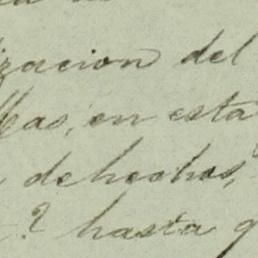 zacion del
llas, en esta
dehechos,
? hasta q